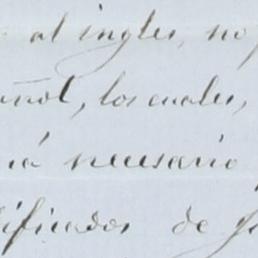 al ingles, no
añol, los cuales,
ná necesario
tificados de